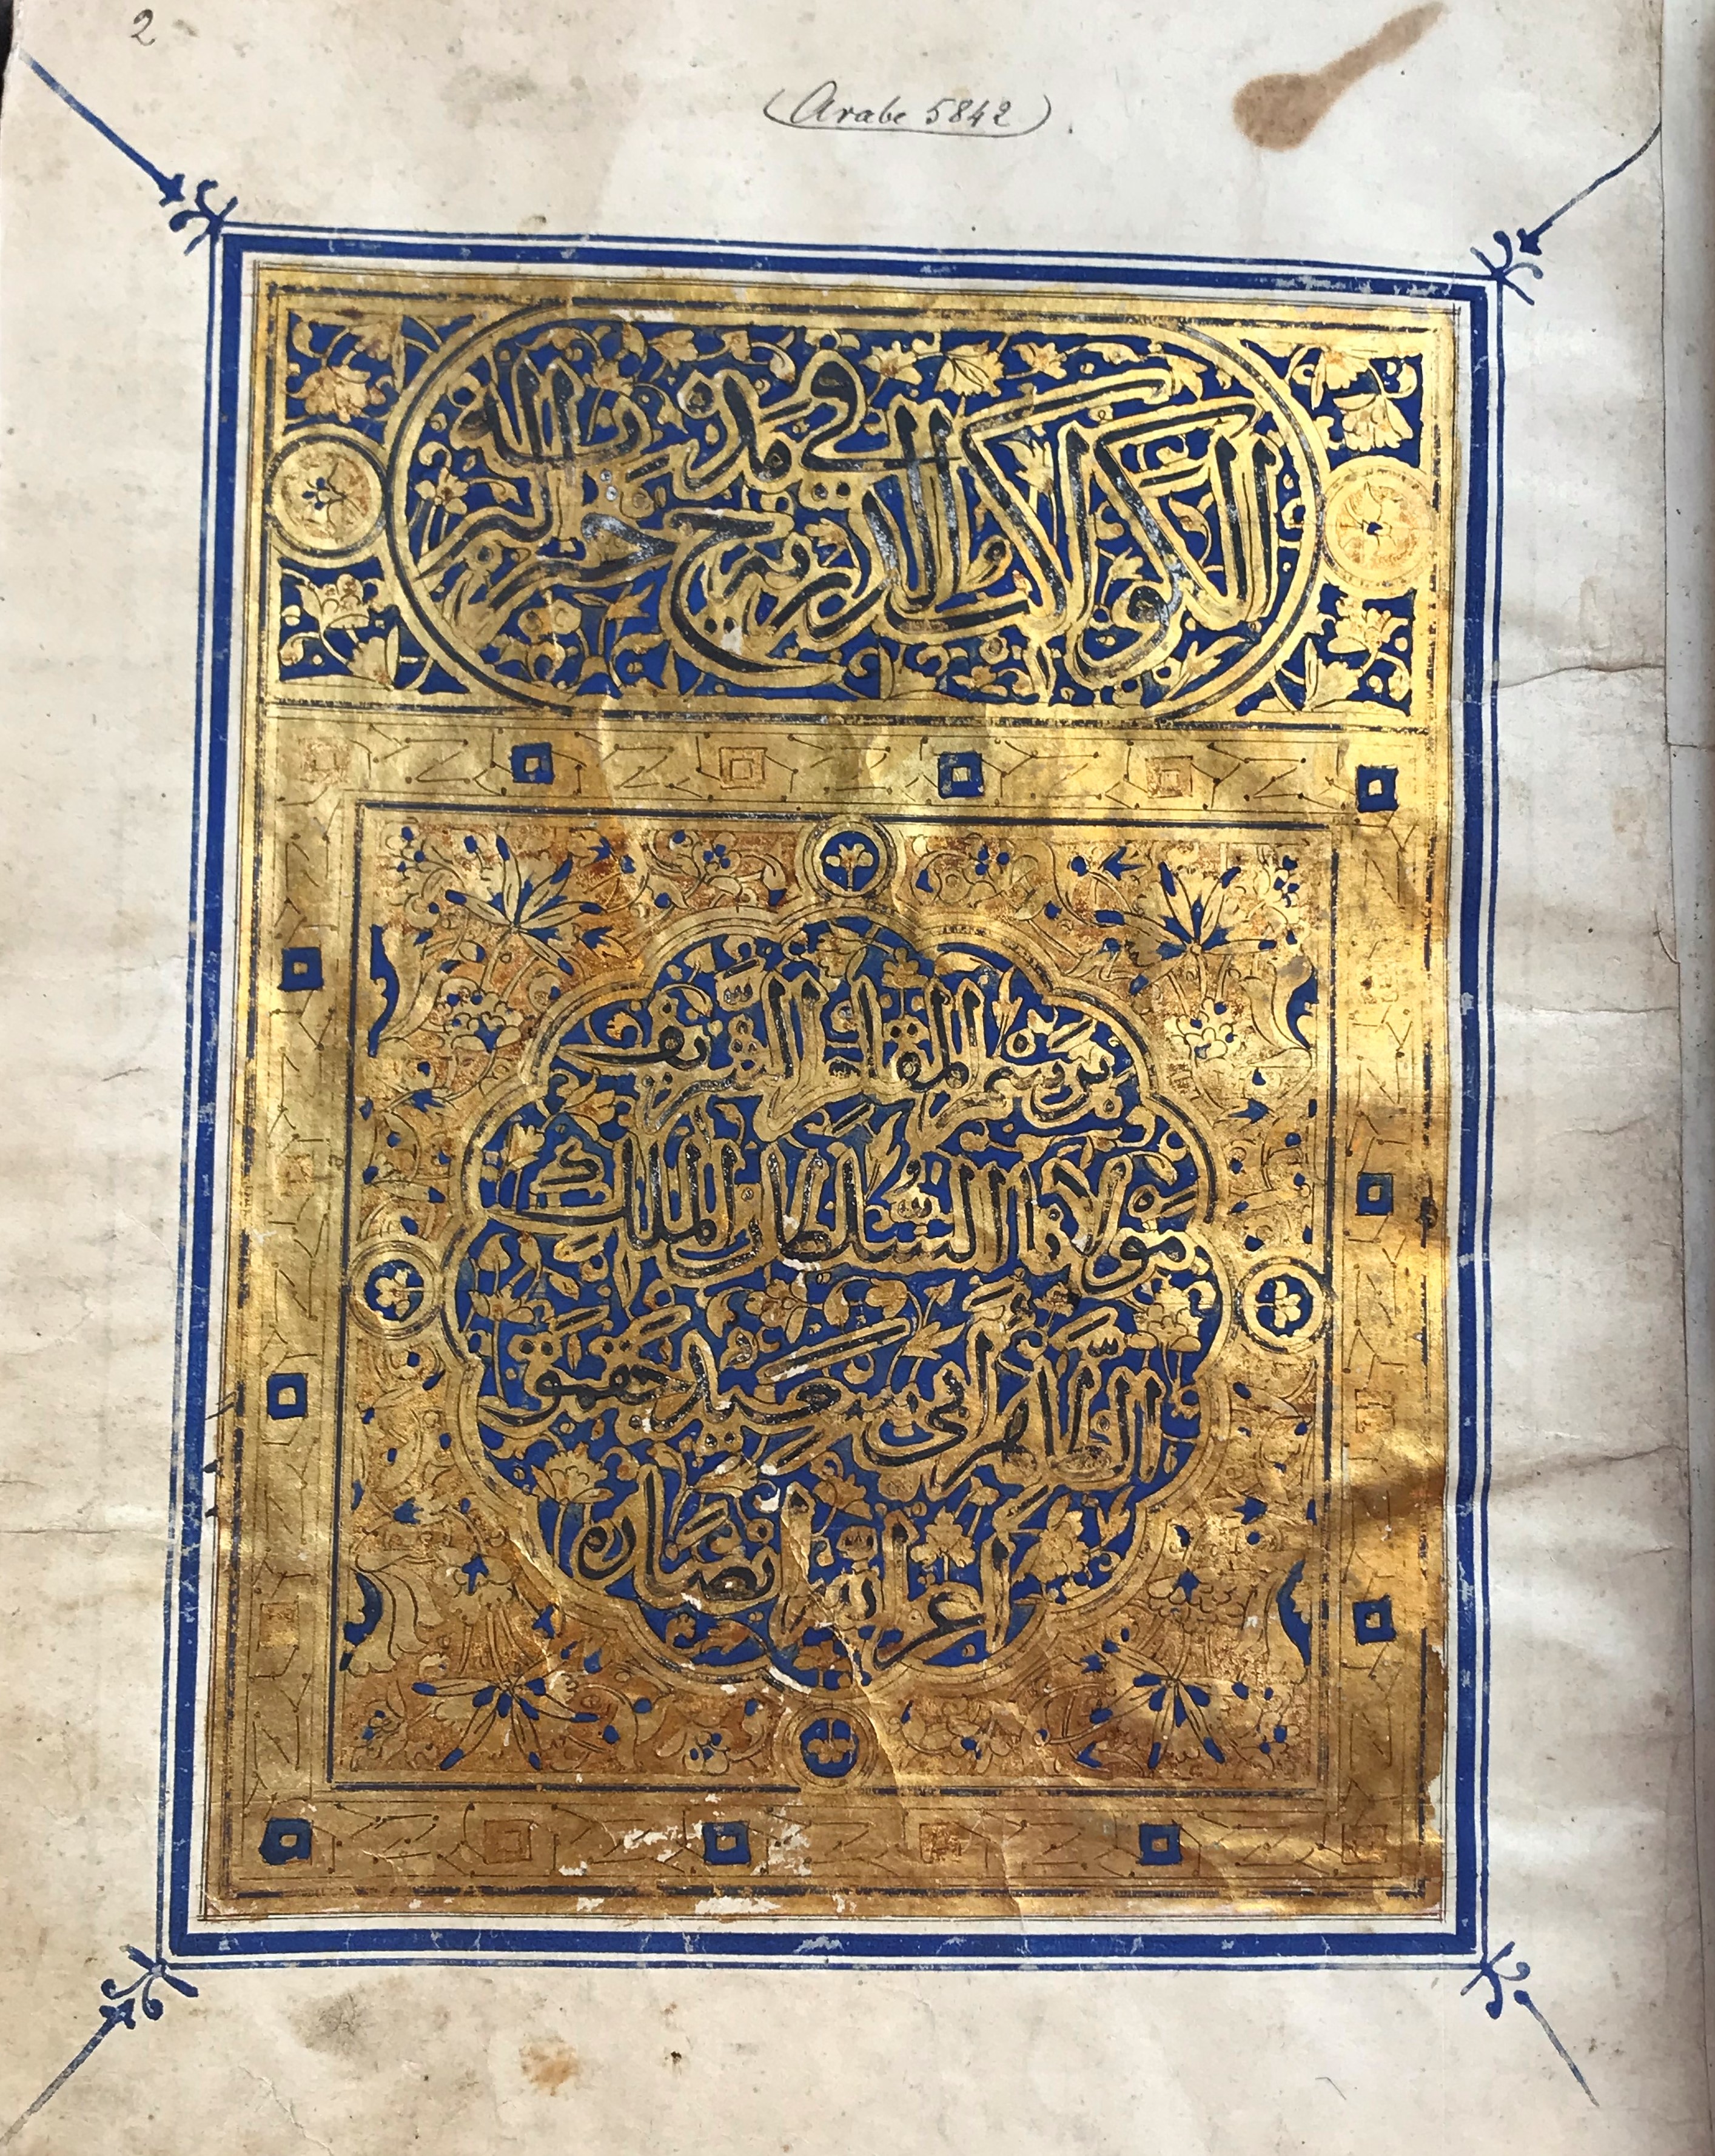 2
(Arabe 5842).
الكواكب الدرية في مدح خير البرية
برسم المقام الشريف
مولانا السلطان الملك
الظاهر ابي سعيد جقمق
اعز الله انصاره